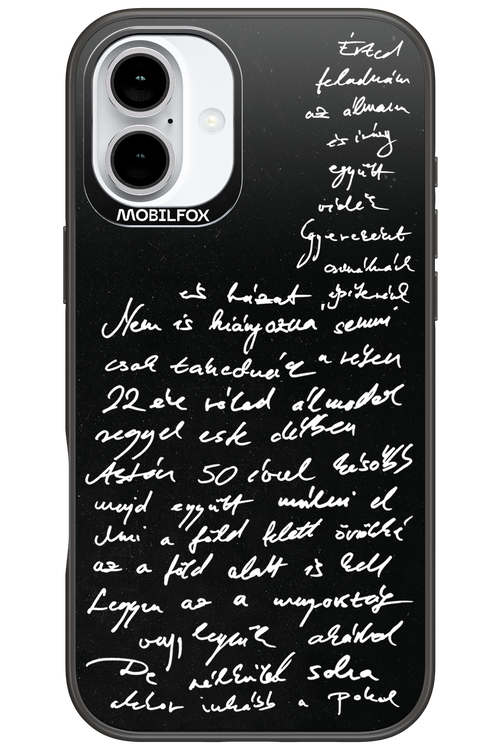 MOBILFOX
Érted
feladnám
az álmaim
és irány
együtt
vidék
Gyereket
csinálnék
és házat építenék
Nem is hiányozna semmi
csak takednéz a
22 éve rólad álmodok
reggel este délben
Aztán 50 évvel később
majd együtt múlni el
Ami a föld felett örökké
az a föld alatt is kell
Legyen az a mennyország
vagy legyünk akárhol
De nélküled soha
akkor inkább a pokol